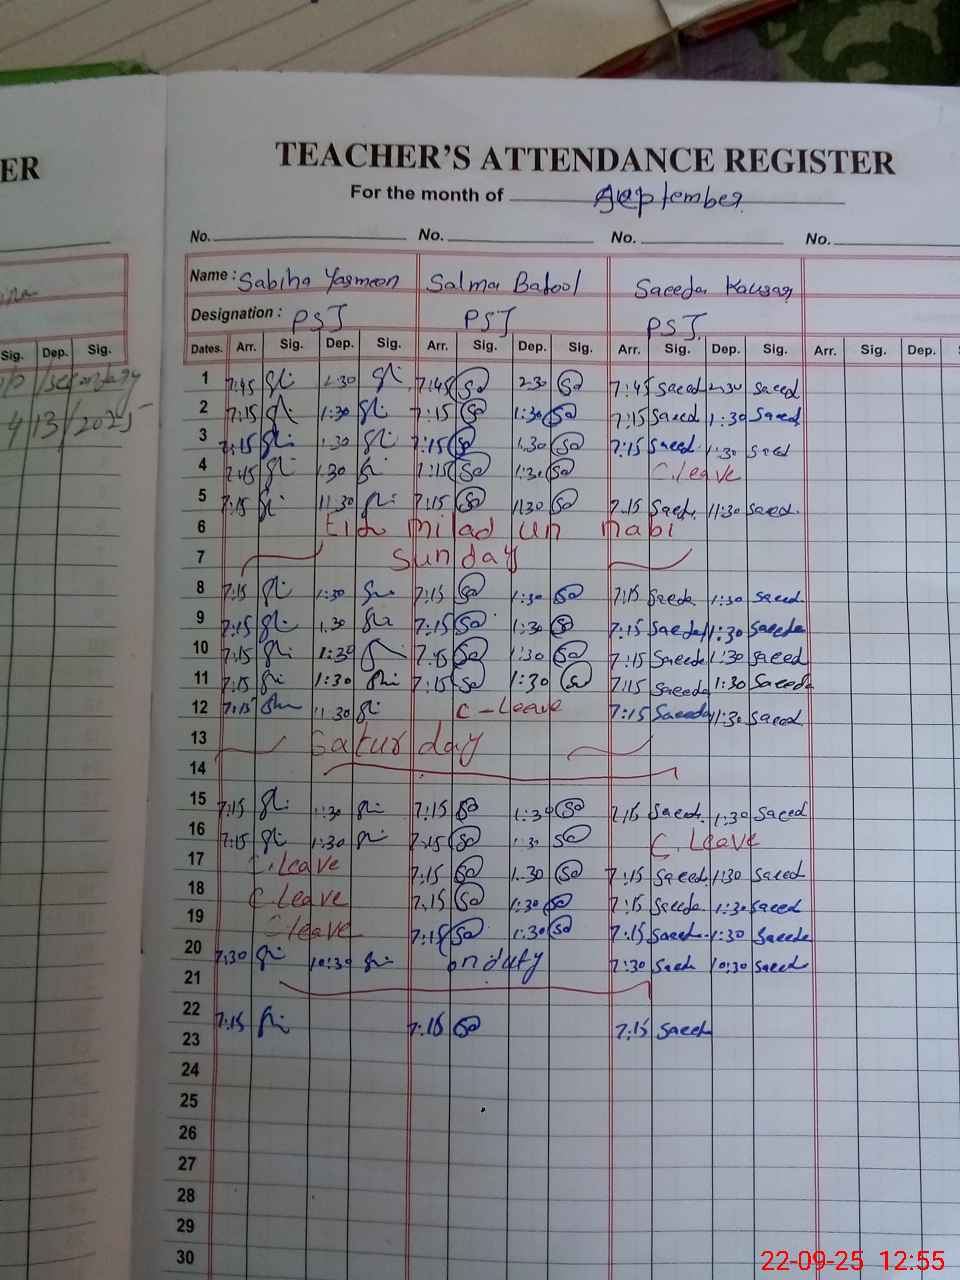 ER
TEACHER'S ATTENDANCE REGISTER
For the month of September
No. No. No. No.
Name: Sabiha Yasmeen Salma Batool Saeeda Kausar
Designation: PST PST PST
Sig. Dep. Sig.
Dates. Arr. Sig. Dep. Sig. Arr. Sig. Dep. Sig. Arr. Sig. Dep. Sig. Arr. Sig. Dep.
1 7:45 2:30 7:45 Sa 2:30 Sa 7:45 Saeed 2:30 Saeed
2 7:15 1:30 7:15 Sa 1:30 Sa 7:15 Saeed 1:30 Saeed
3 7:15 1:30 7:15 Sa 1:30 Sa 7:15 Saeed 1:30 Saed
4 7:15 1:30 7:15 Sa 1:30 Sa C.leave
5 7:15 11:30 7:15 Sa 11:30 Sa 7:15 Saeed. 11:30 Saeed.
6 Eid milad un nabi
7 Sunday
8 7:15 1:30 7:15 Sa 1:30 Sa 7:15 Saeeda 1:30 Saeed
9 7:15 1:30 7:15 Sa 1:30 Sa 7:15 Saeeda 1:30 Saeeda
10 7:15 1:30 7:15 Sa 1:30 Sa 7:15 Saeeda 1:30 Saeed
11 7:15 1:30 7:15 Sa 1:30 Sa 7:15 Saeeda 1:30 Saeeda
12 7:15 11:30 C-Leave 7:15 Saeeda 11:30 Saeed
13 Saturday
14
15 7:15 1:30 7:15 Sa 1:30 Sa 7:15 Saeed. 1:30 Saeed
16 7:15 1:30 7:15 Sa 1:30 Sa C.Leave
17 C.leave 7:15 Sa 1:30 Sa 7:15 Saeed. 1:30 Saeed
18 C leave 7:15 Sa 1:30 Sa 7:15 Saeeda 1:30 Saeed
19 C leave 7:15 Sa 1:30 Sa 7:15 Saeed 1:30 Saeeda
20 7:30 10:30 on duty 7:30 Saeeda 10:30 Saeed
21
22 7:15 7:15 Sa 7:15 Saeed
23
24
25
26
27
28
29
30
22-09-25 12:55